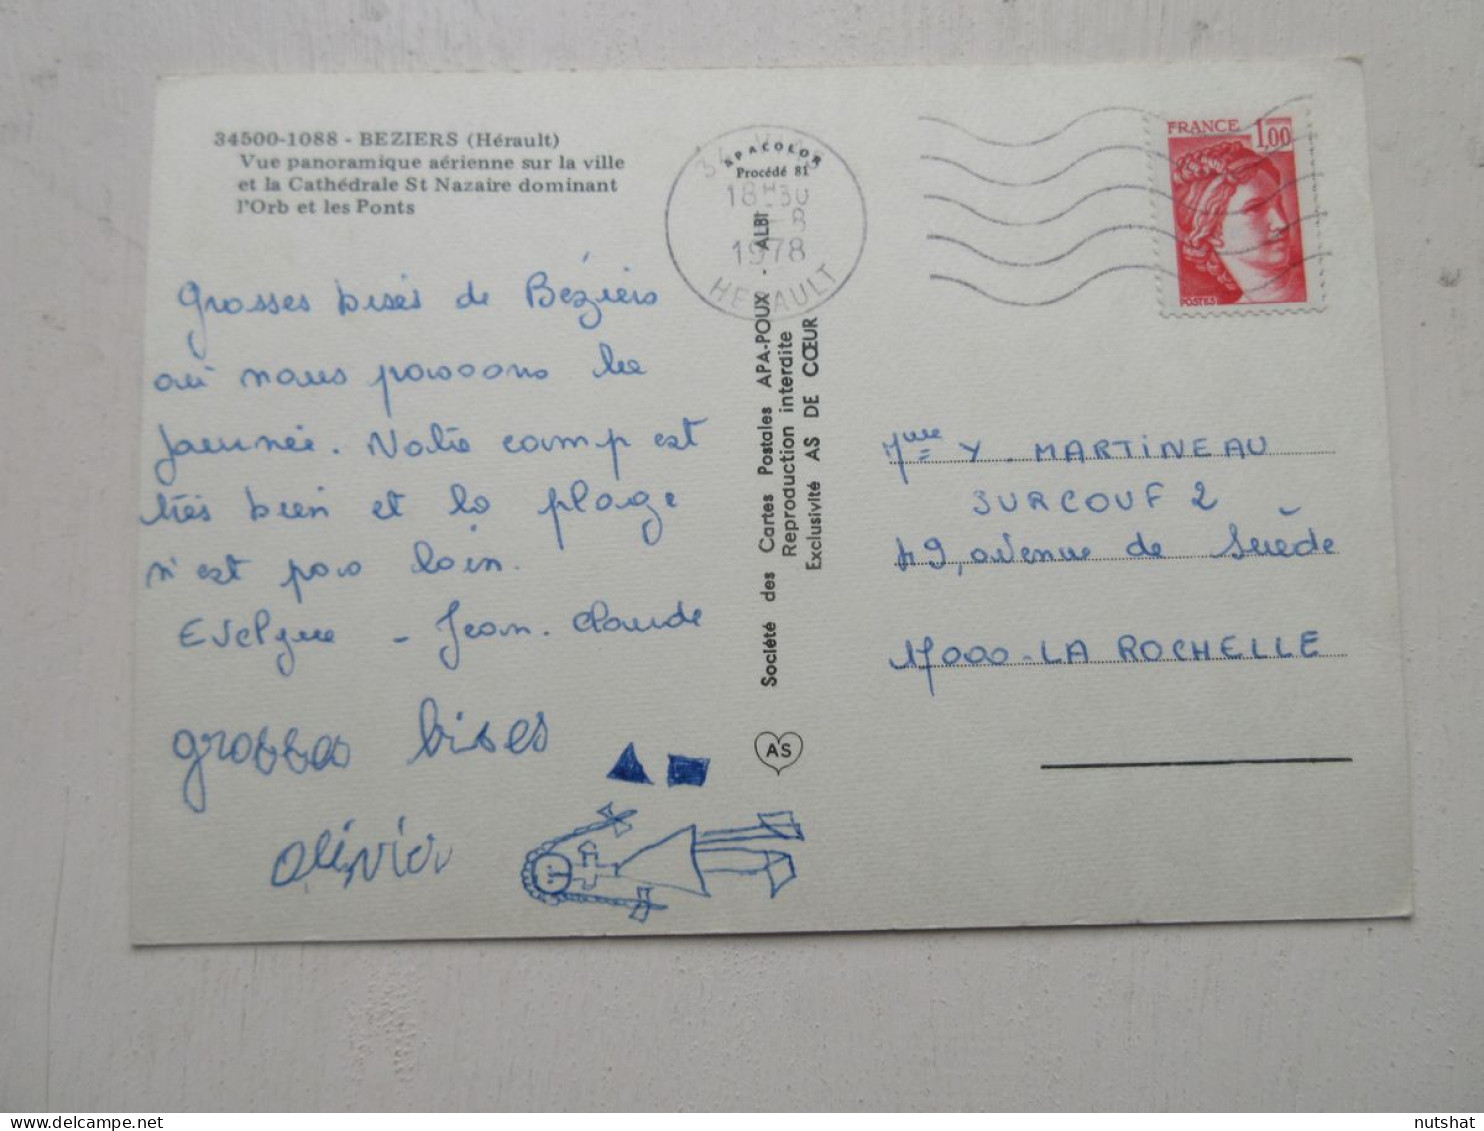 34500-1088 - BEZIERS (Hérault)
Vue panoramique aérienne sur la ville
et la Cathédrale St Nazaire dominant
l'Orb et les Ponts
Grosses bises de Béziers
où nous passons la
journée. Notre camp est
très bien et la plage
n'est pas loin.
Evelyne - Jean-Claude
grosses bises
olivier
SPACOLOR
Procédé 81
34 VIAS
18H30
-8
1978
HERAULT
Société des Cartes Postales APA-POUX - ALBI
Reproduction interdite
Exclusivité AS DE CŒUR
AS
FRANCE 1,00
POSTES
Mme Y. MARTINEAU
SURCOUF 2
49, avenue de Suède
17000 - LA ROCHELLE
nutshat